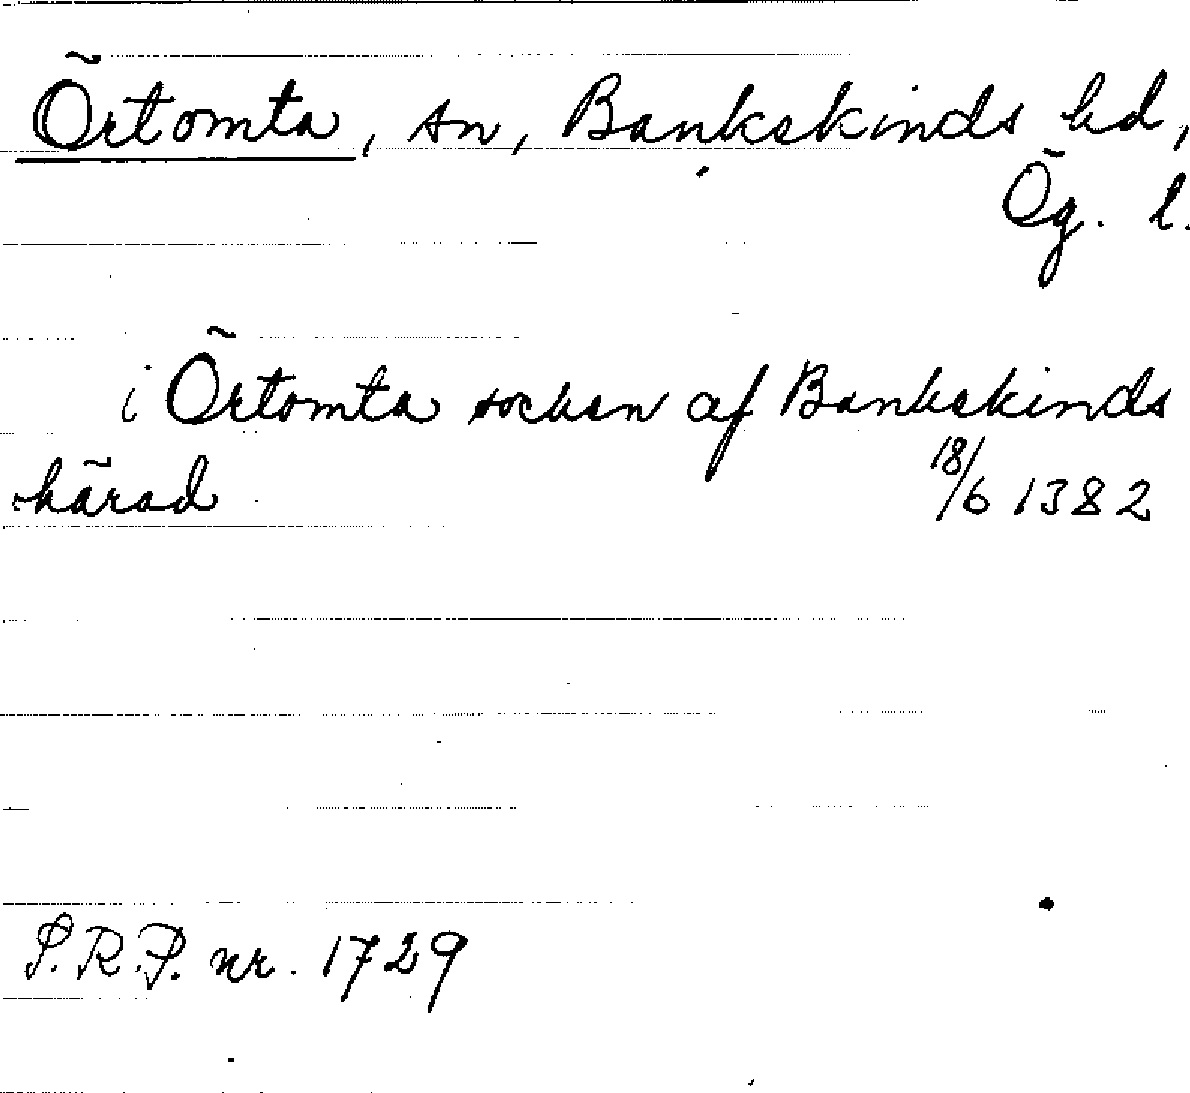 Örtomta, sn, Bankekinds hd,
Ög. l.
i Örtomta socken af Bankekinds
härad 18/6 1382
S.R.P. nr. 1729